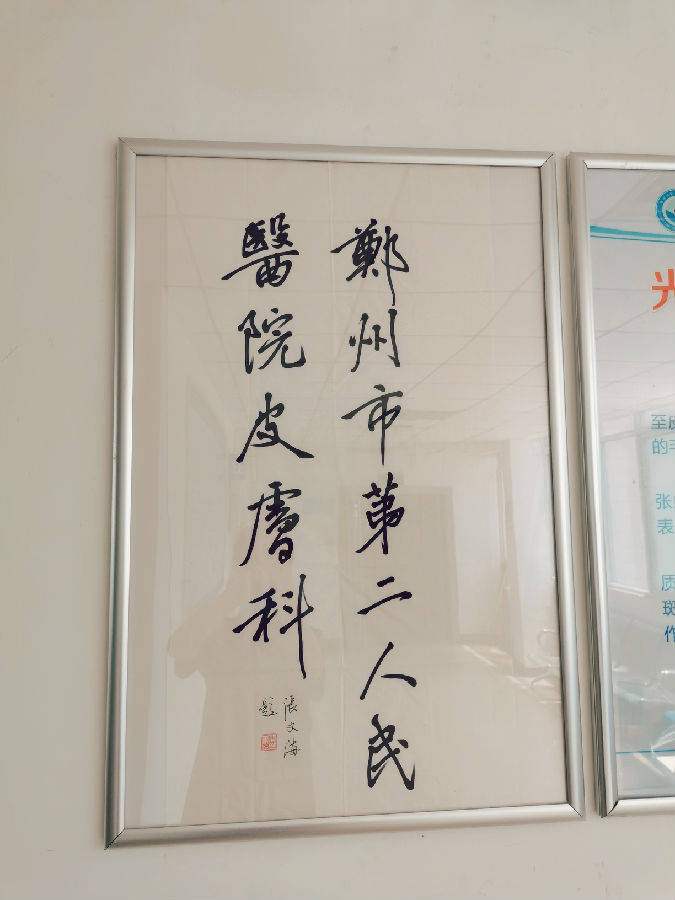 鄭州市第二人民
醫院皮膚科
張文海
題
光
至皮
的
张
表
质
斑
作